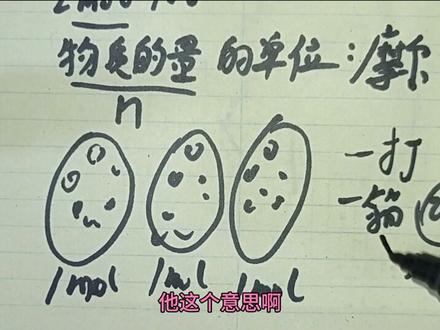 物质的量的单位:摩尔
n
一打
一箱
1mol 1ml 1mol
他这个意思啊